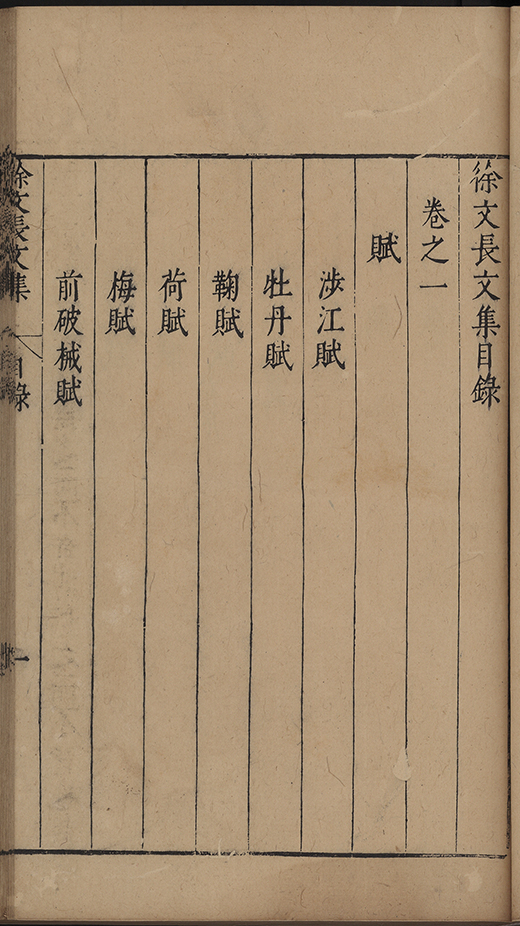 徐文長文集目錄
卷之一
賦
涉江賦
牡丹賦
鞠賦
荷賦
梅賦
前破械賦
徐文長文集
目錄
一